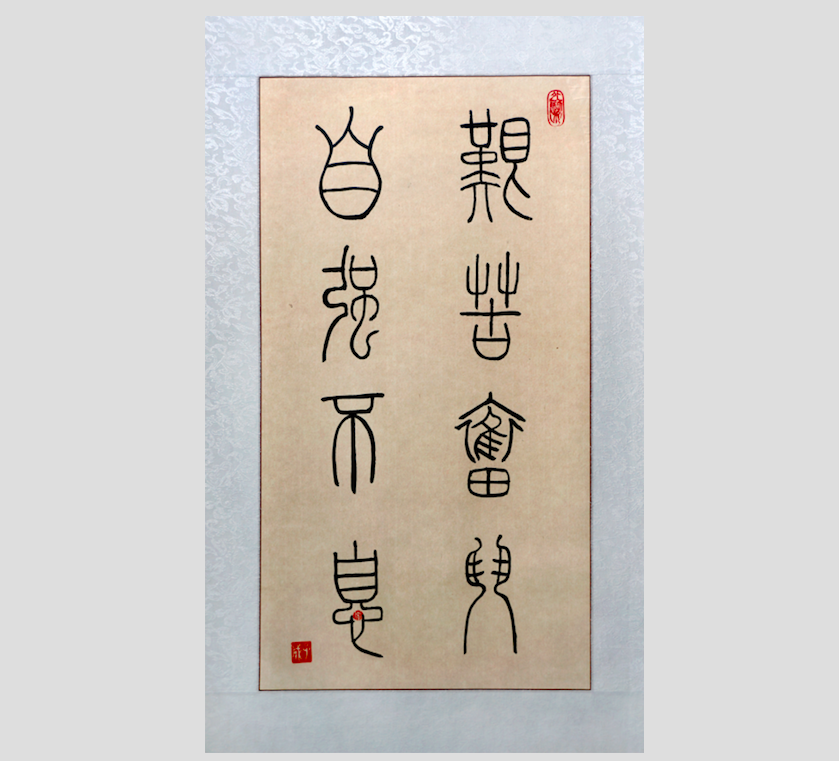 艱苦奮鬥
自强不息